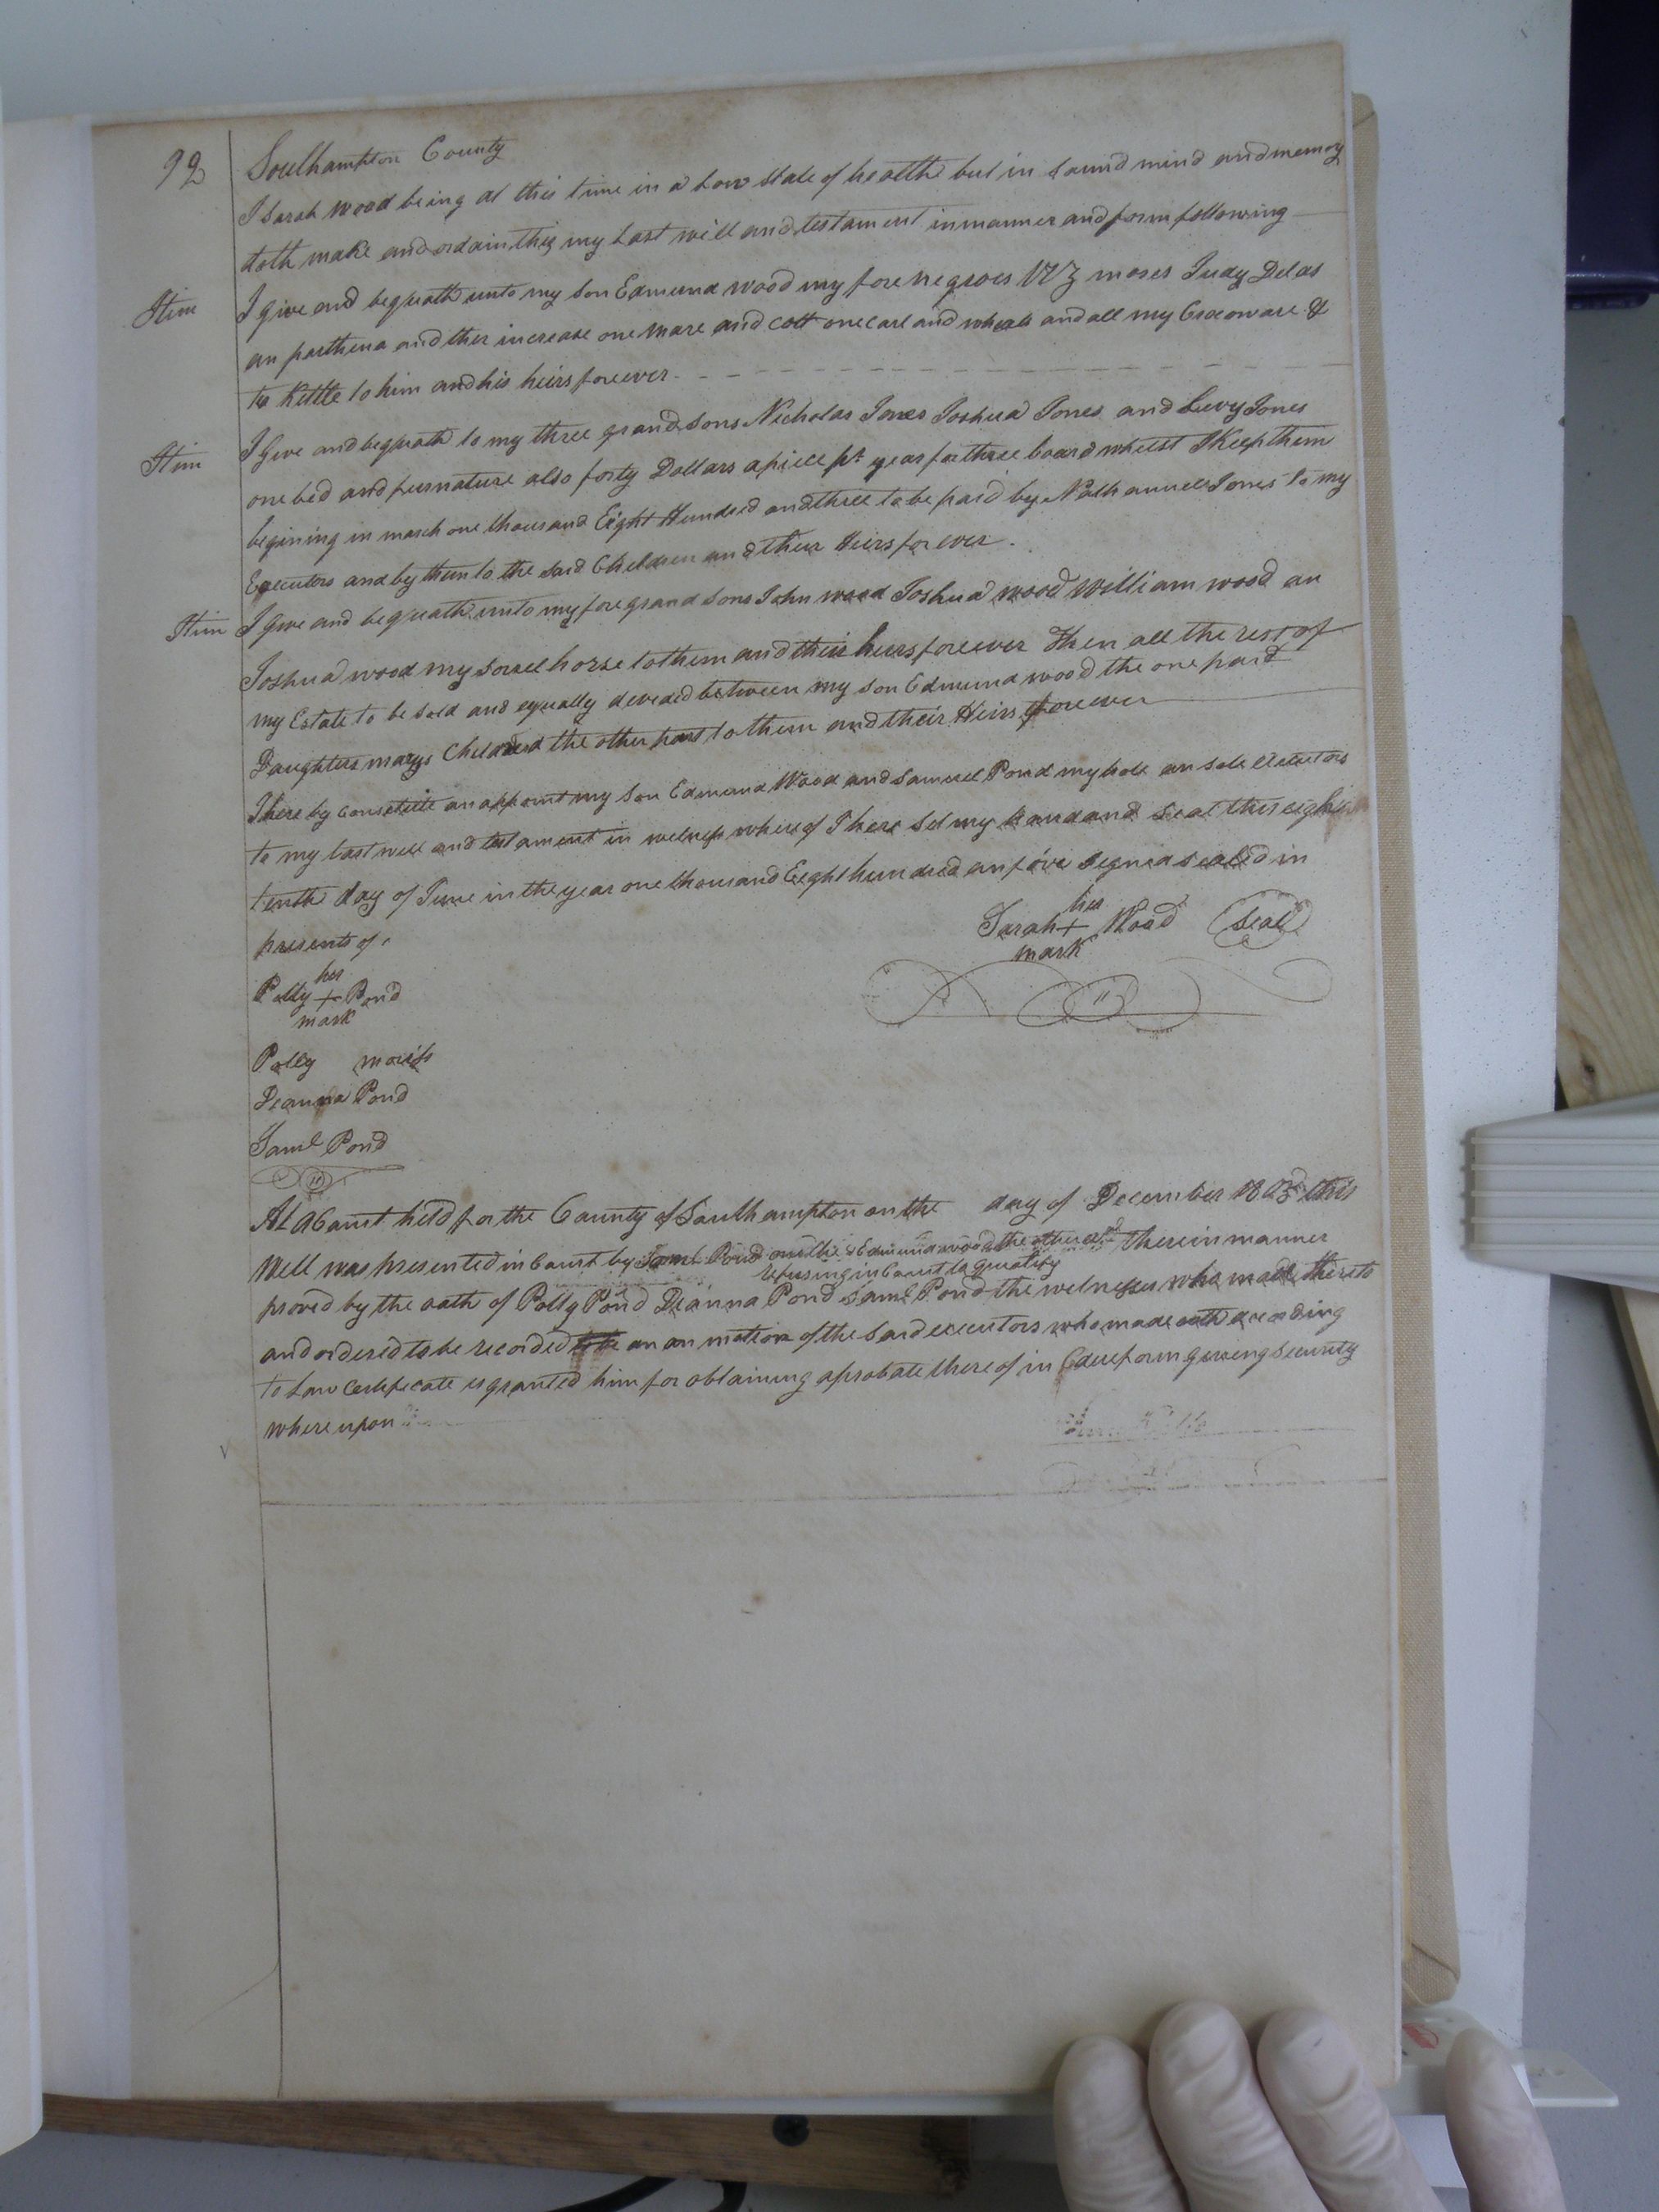 92
Southampton County
I Sarah Wood being at this time in a Low State of health but in sound mind and memory
doth make and ordain this my Last will and testament in manner and form following
Item I give and bequath unto my Son Edmund Wood my fore negroes Viz moses Judy Delas
an parthena and ther increase one mare and colt one cart and wheals and all my &
te Kettle to him and his heirs forever
Item I Give and bequath to my three grand Sons Nicholas Jones Joshua Jones and Levy Jones
one bed and furnature also forty Dollars apiece pr year for three board whilst I Keep them
begining in march one thousand Eight Hundred and three to be paid by Nathannell Jones to my
Executors and by them to the Said Children and their Heirs for ever.
Item I Give and bequath unto my fore grand Sons John wood Joshua wood William wood an
Joshua wood my Sorrel horse to them and their heirs forever Then all the rest of
my Estate to be Sold and equally deveded between my Son Edmund wood the one part
Daughters marys the other part to them and their Heirs forever
I here by constitute an appoint my Son Edmund Wood and Samuel Pond my hole an Sole executors
to my last will and testament in welness whereof I here Set my hand and Seal this eigh
tenth day of June in the year one thousand Eight hundred an five Signed sealed in
presents of
her
Sarah + Wood (Seal)
mark
her
Polly + Pond
mark
Polly
Deanna Pond
Saml Pond
At a Court held for the County of Southampton on the day of December 1805 this
Will was presented in Court by Saml Pond one the & Edmund wood the other therein manner
refusing in Court to qualify
proved by the oath of Polly Pond Deanna Pond Saml Pond the welnesses who made thereto
and ordered to be recorded an on motion of the Said executors who made oath according
to Law Certificate is granted him for obtaining a probate there of in due form giveng Security
where upon